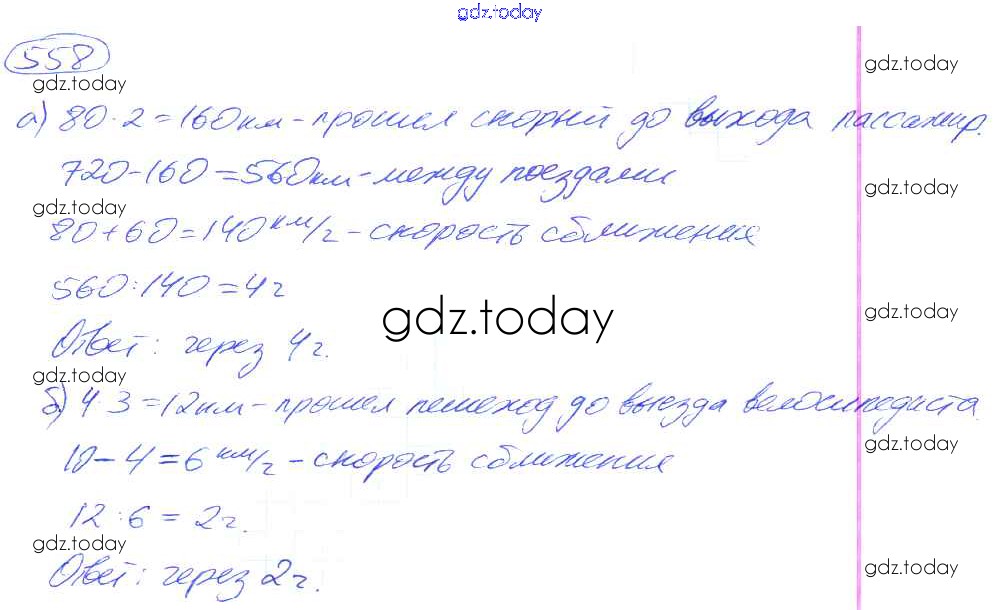 gdz.today
558
gdz.today
gdz.today
а) 80·2=160км-прошел скорый до выхода пассажир.
720-160=560км-между поездами
gdz.today
gdz.today
80+60=140км/г-скорость сближения
560:140=4г
gdz.today
gdz.today
Ответ: через 4г.
gdz.today
б) 4·3=12км-прошел пешеход до выезда велосипедиста
gdz.today
10-4=6км/г-скорость сближения
12:6=2г.
gdz.today
gdz.today
Ответ: через 2г.